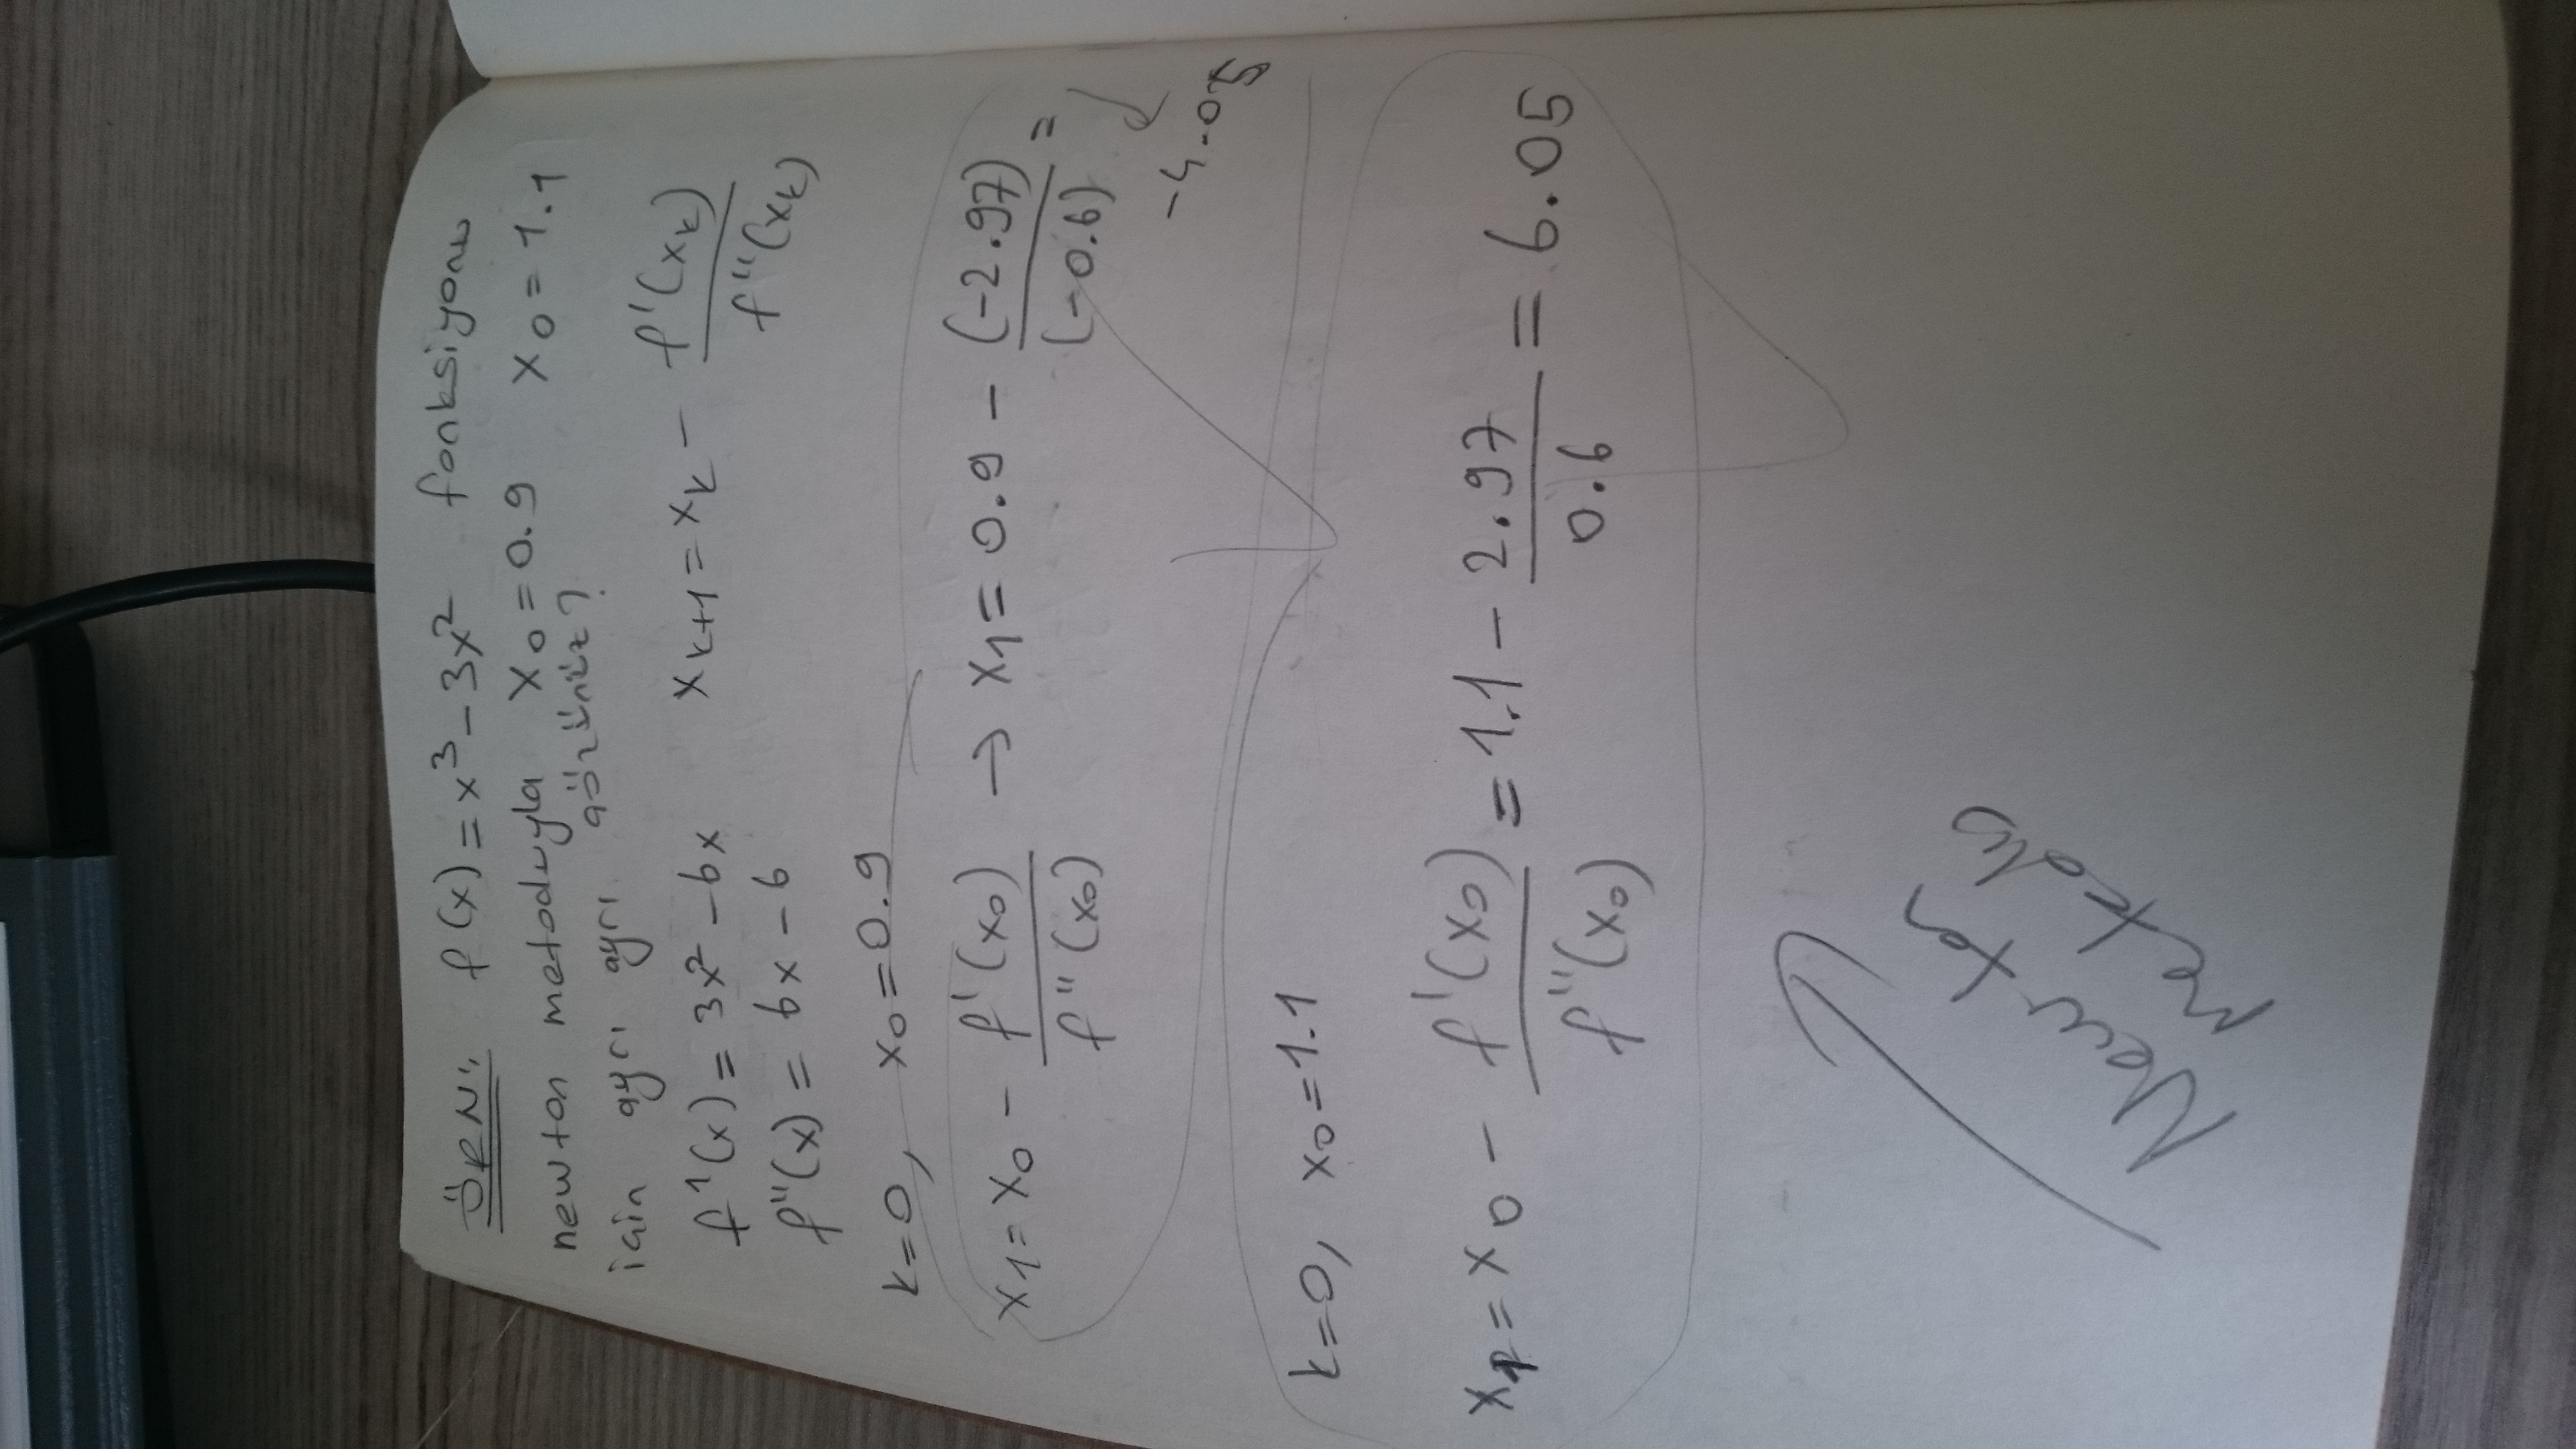 ÖRN: f(x) = x³ - 3x² fonksiyonu
newton metoduyla x₀ = 0.9 x₀ = 1.1
için ayrı ayrı çözünüz?
f'(x) = 3x² - 6x x_{k+1} = x_k - f'(x_k) / f''(x_k)
f''(x) = 6x - 6
k=0, x₀ = 0.9
x₁ = x₀ - f'(x₀) / f''(x₀) → x₁ = 0.9 - (-2.97) / (-0.6) =
-4.05
k=0, x₀ = 1.1
x₁ = x₀ - f'(x₀) / f''(x₀) = 1.1 - 2.97 / 0.6 = 6.05
Newton
metodu